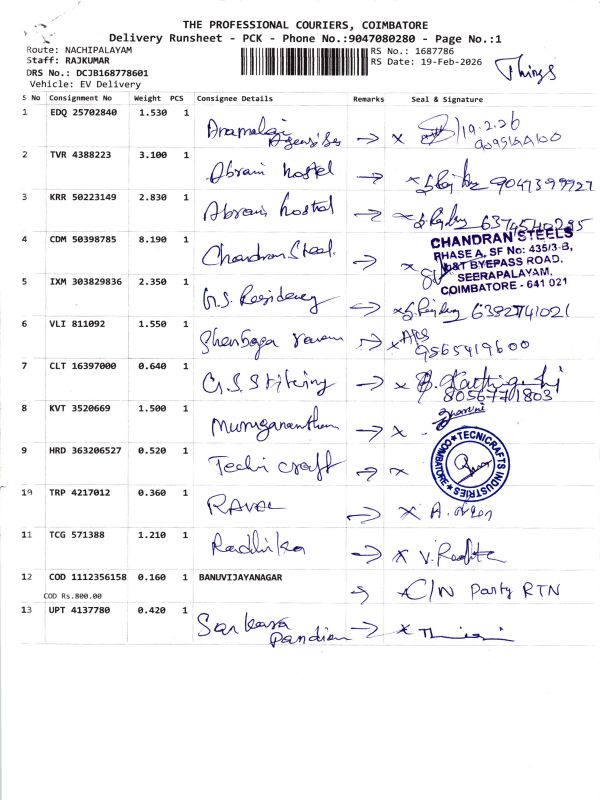 THE PROFESSIONAL COURIERS, COIMBATORE
Delivery Runsheet - PCK - Phone No.:9047080280 - Page No.:1
Route: NACHIPALAYAM
RS No.: 1687786
Staff: RAJKUMAR
RS Date: 19-Feb-2026
DRS No.: DCJB168778601
Things
Vehicle: EV Delivery
S No Consignment No Weight PCS Consignee Details Remarks Seal & Signature
1 EDQ 25702840 1.530 1 19.2.26
2 TVR 4388223 3.100 1 Abrami hostel → x 9047399927
3 KRR 50223149 2.830 1 Abrami hostal → x 6374540295
4 CDM 50398785 8.190 1 Chandran Steel → x
CHANDRAN STEELS
PHASE A, SF No: 435/3-B,
BYEPASS ROAD,
SEERAPALAYAM,
COIMBATORE - 641 021
5 IXM 303829836 2.350 1 G.S. Residency → x 6382741021
6 VLI 811092 1.550 1 → x
9565919600
7 CLT 16397000 0.640 1 G.S Stitching → x
8056771803
8 KVT 3520669 1.500 1 Murugananthan → x
9 HRD 363206527 0.520 1 Techi craft → x
TECNICRAFTS INDUSTRIES COIMBATORE
19 TRP 4217012 0.360 1 → x
11 TCG 571388 1.210 1 Radhika → x
12 COD 1112356158 0.160 1 BANUVIJAYANAGAR → C/N Party RTN
COD Rs.800.00
13 UPT 4137780 0.420 1 Sankara Pandian → x